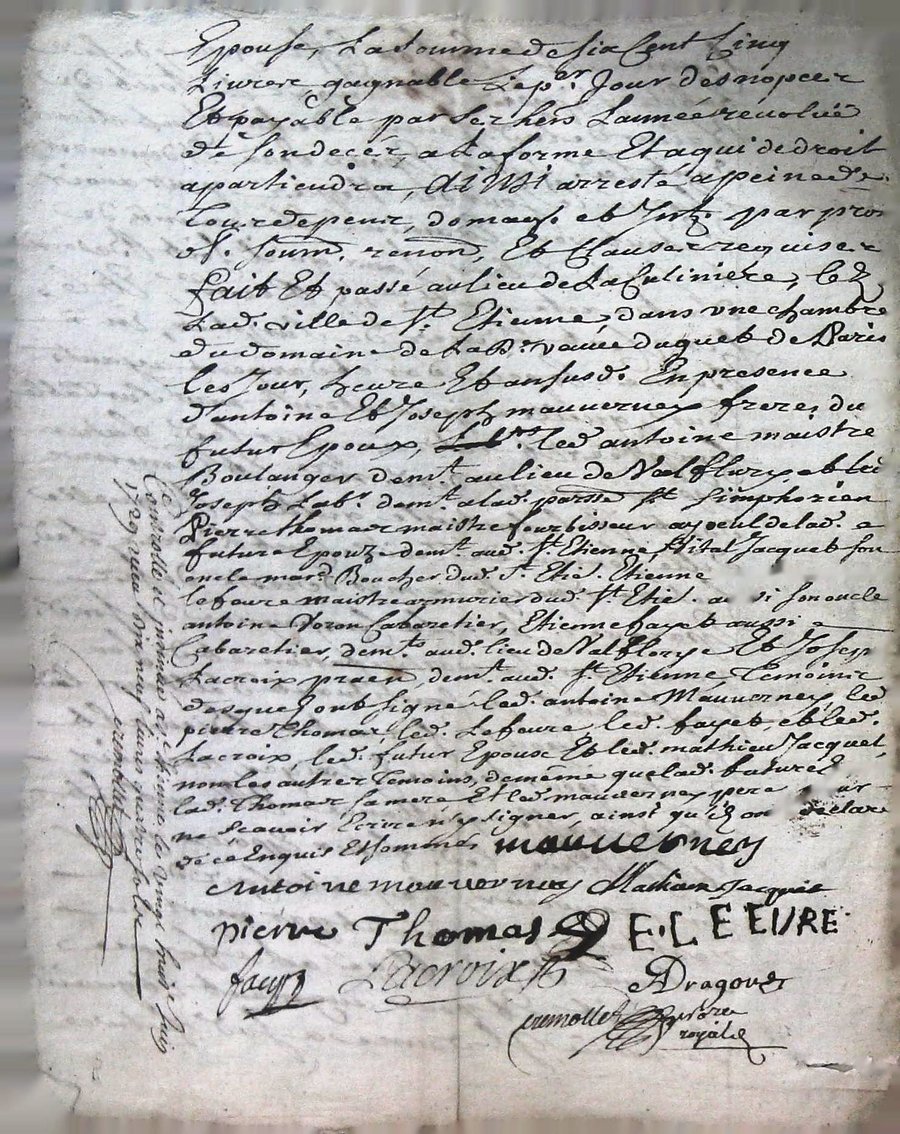 Epouse, La somme de six Cent Cinq
Livres gagnable Le per. Jour des nopces
Et payable par ses hers Lannée révolüe
de son decés, a la forme Et a qui de droit
apartiendra, Ainsi arresté a peine de
tous depens, domag. et Intz. par pro
obl. soum. renon, Et Clauses requises
fait Et passé au lieu de La Culiniere, lez
Lad. ville de St. Etienne, dans une chambre
du domaine de La De. vauve duguet de Paris
les Jour, heure Et an susd. En presence
d'antoine Et Joseph mauverney freres du
futur Epoux, led. antoine maistre
Boulanger demt. au lieu de Valfleury et led
Joseph Labr. demt. a lad. parsse St simphorien
Pierre thomas maistre fourbisseur ayoeul de lad.
future Epouze demt. aud. St. Etienne, Vital Jacquet son
oncle mard. Boucher dud. St. Etie. Etienne
lefevre maistre armurier dud. St. Etie. au si son oncle
antoine Voron Cabaretier, Etienne fayet aussi
Cabaretier, demts. aud. lieu de Valflorye Et Josep
Lacroix praen demt. aud. St. Etienne, Témoins
desquels ont signé led. antoine Mauverney, led
pierre Thomas, led. Lefevre, led. fayet, et led.
Lacroix, led. futur Epoux Et led. mathieu Jacquet,
non les autres Temoins, de même que lad. future
lad. Thomas sa mere Et led. mauverney pere
ne scavoir Ecrire ny signer, ainsi qu'ils on déclaré
de ce Enquis Et sommés mauverney
Antoine mauverney Mathieu Jacquet
pierre Thomas E. LEFEVRE
fayet Lacroix
Dragones
cremollet nore
royal
Controllé et insinué a St. Etienne le vingt huit Juin
1729 receu dix neuf livres quatre sols
cremollet